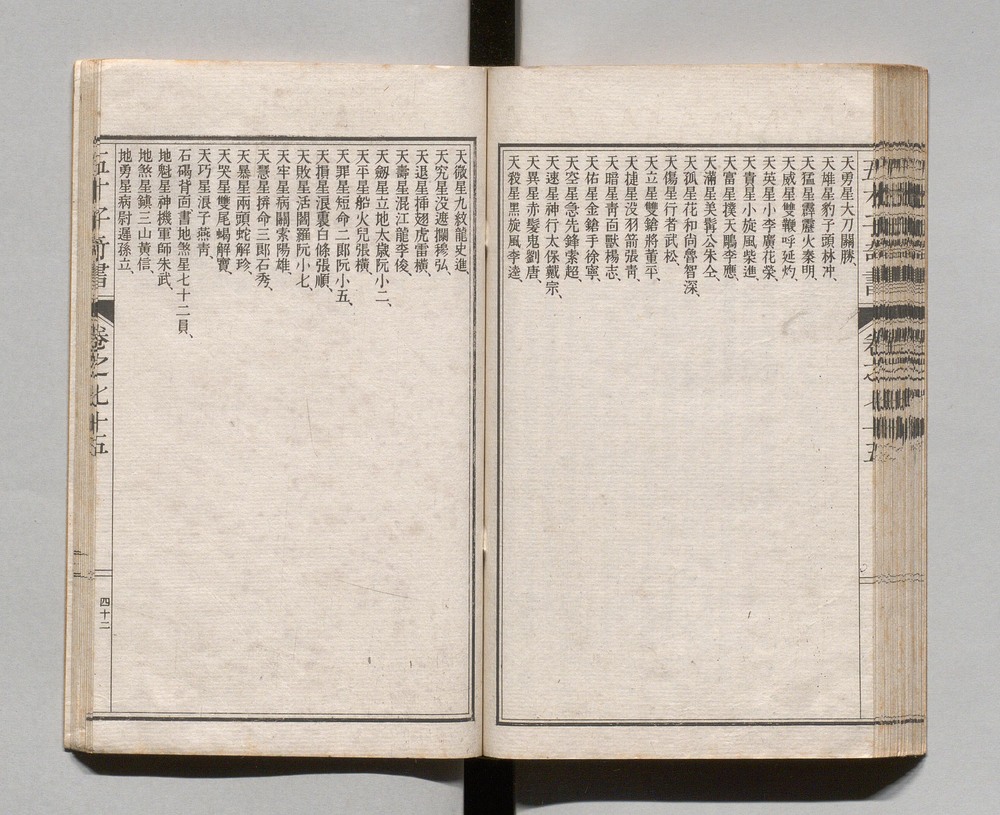 天勇星大刀關勝、
天雄星豹子頭林冲、
天猛星霹靂火秦明、
天威星雙鞭呼延灼、
天英星小李廣花榮、
天貴星小旋風柴進、
天富星撲天鵰李應、
天滿星美髯公朱仝、
天孤星花和尚魯智深、
天傷星行者武松、
天立星雙鎗將董平、
天捷星沒羽箭張靑、
天暗星靑面獸楊志、
天佑星金鎗手徐寧、
天空星急先鋒索超、
天速星神行太保戴宗、
天異星赤髮鬼劉唐、
天殺星黑旋風李逵、
天微星九紋龍史進、
天究星沒遮攔穆弘、
天退星挿翅虎雷橫、
天壽星混江龍李俊、
天劔星立地太歲阮小二、
天平星船火兒張橫、
天罪星短命二郞阮小五、
天損星浪裏白條張順、
天敗星活閻羅阮小七、
天牢星病關索陽雄、
天慧星拚命三郞石秀、
天暴星兩頭蛇解珍、
天哭星雙尾蝎解寶、
天巧星浪子燕靑、
石碣背面書地煞星七十二員、
地魁星神機軍師朱武、
地煞星鎭三山黃信、
地勇星病尉遲孫立、
五才子奇書
卷之七十五
四十二